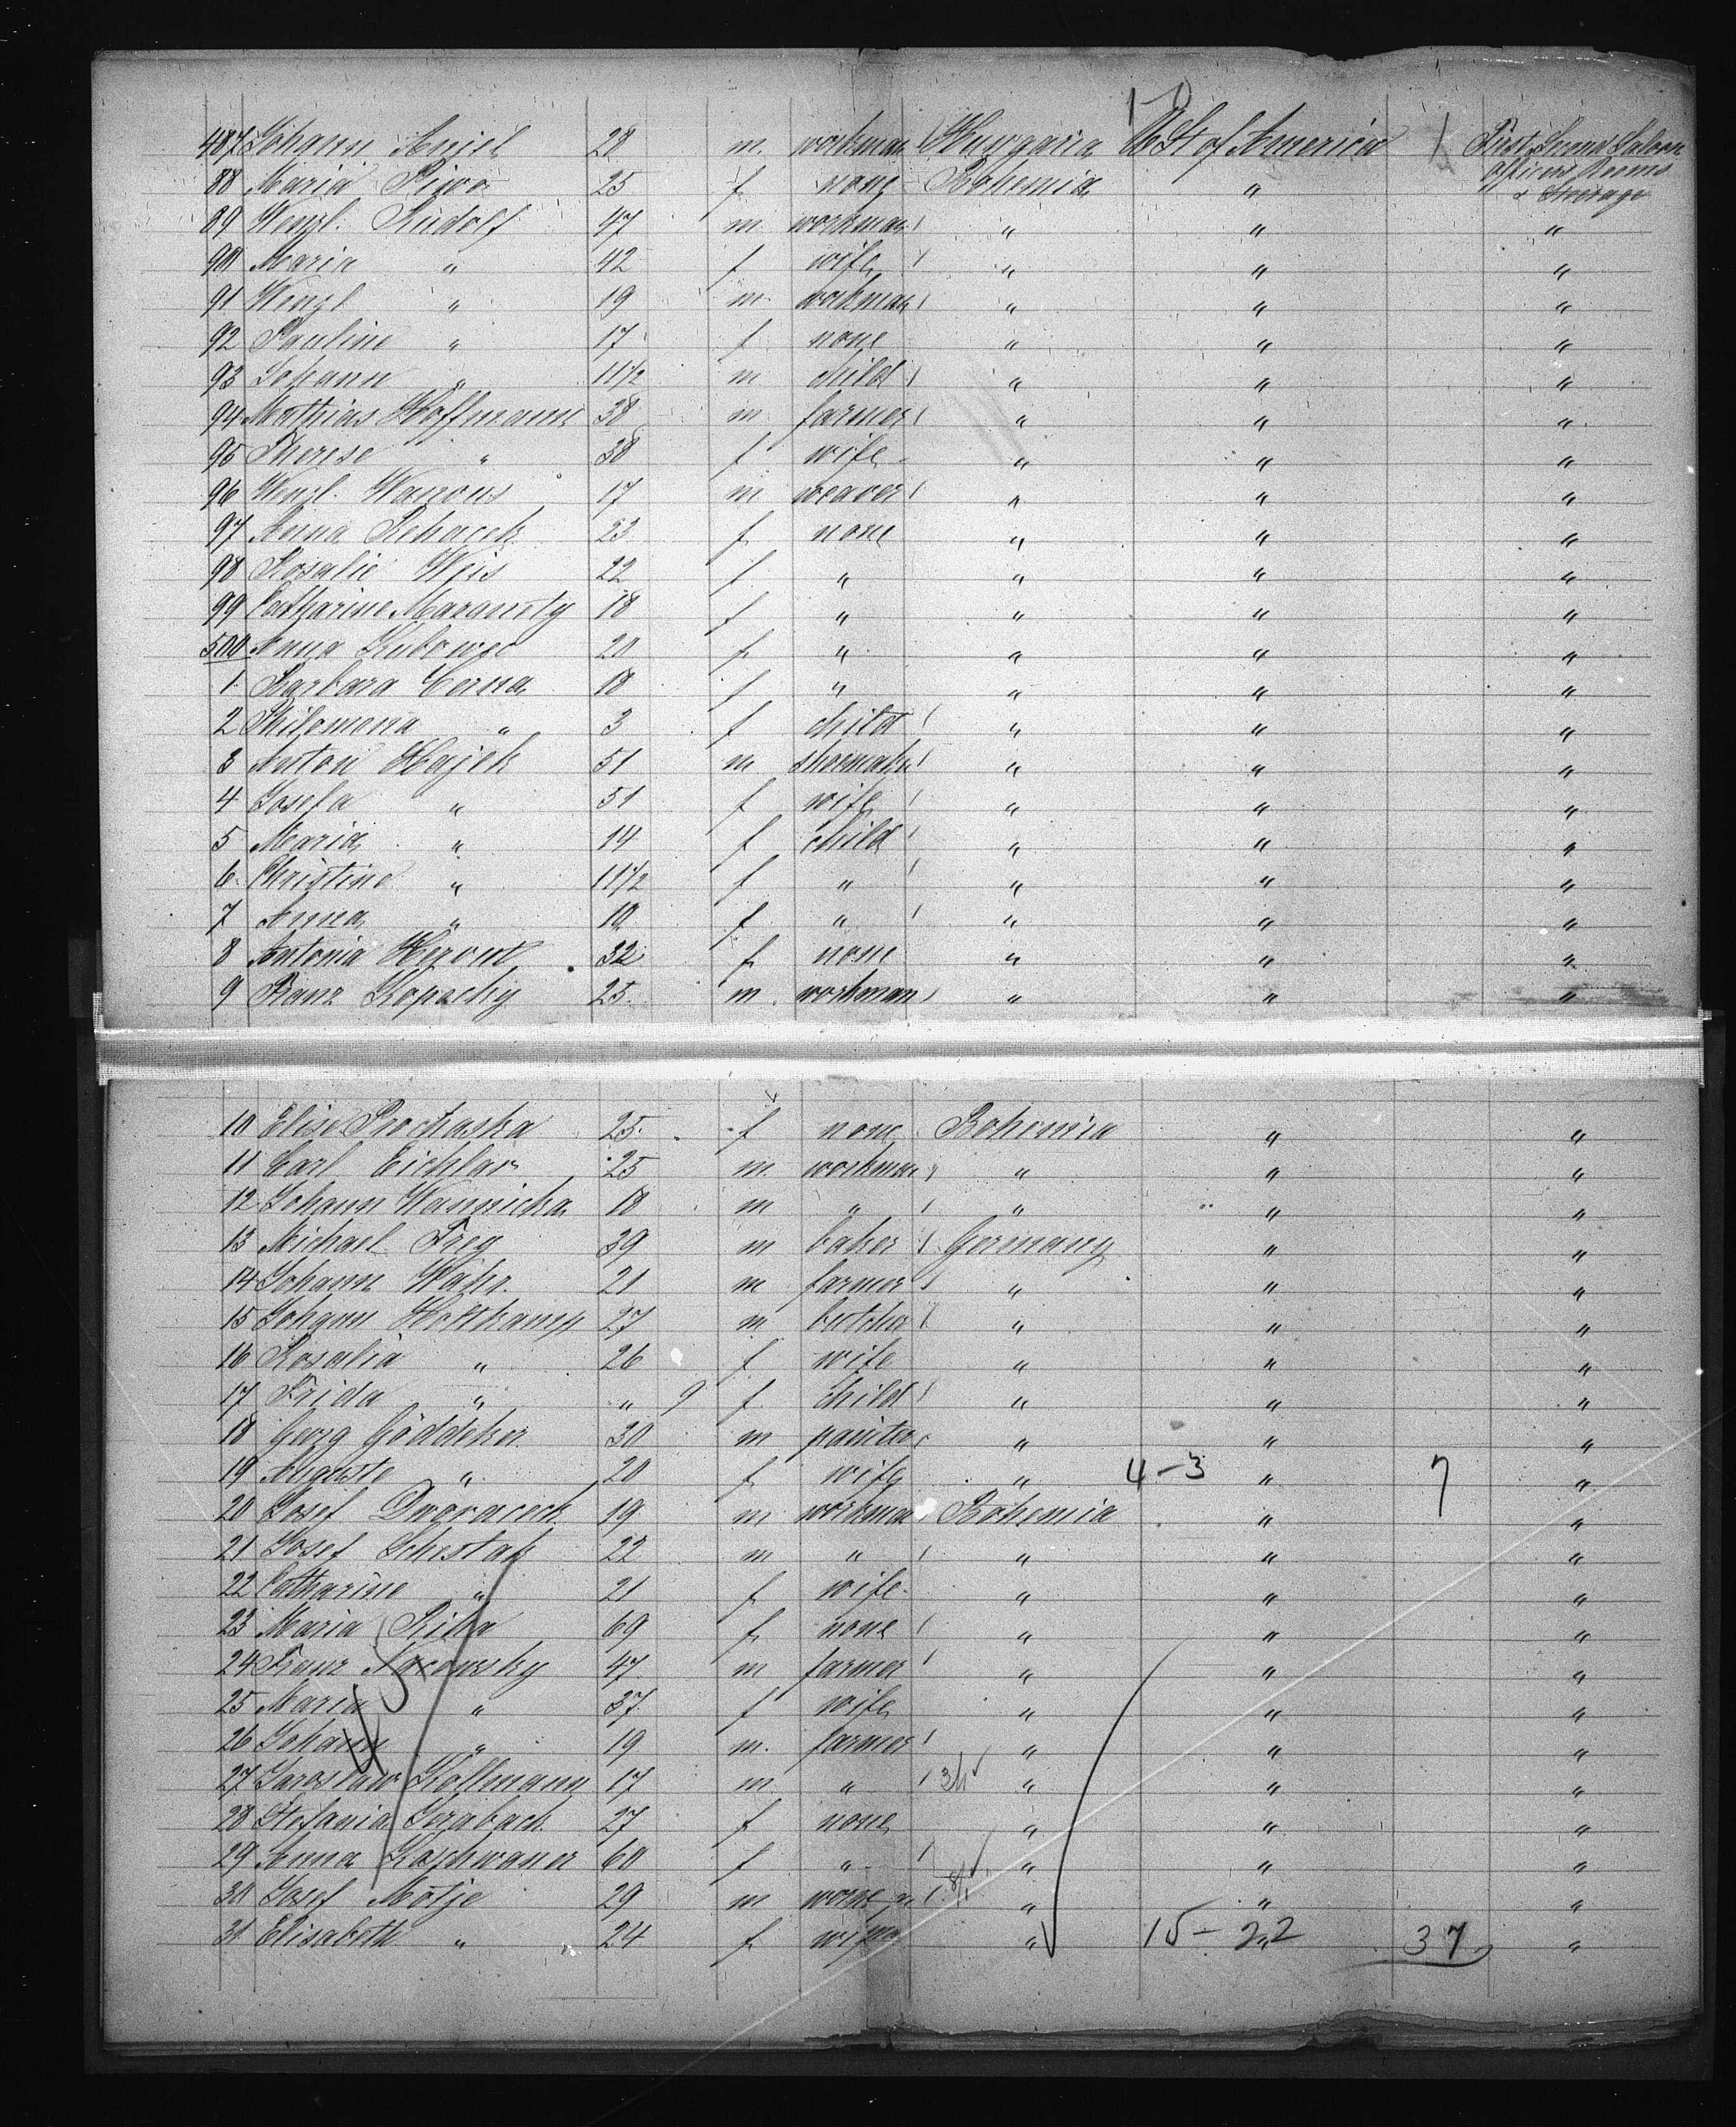 1-0
487 Johann 28 m. workman Hungaria USt of America 1 First, Saloon
88 Maria Pivo 25 f none Bohemia " Officers Rooms
& Steerage
89 Wenzl. Rudolf 47 m workman " " "
90 Maria " 42 f wife " " "
91 Wenzl " 19 m. workman " " "
92 Pauline " 17 f none " " "
93 Johann " 11 1/2 m child " " "
94 Mathias Hoffmann 38 m. farmer " " "
95 Therese " 38 f wife " " "
96 Wenzl. Wanous 17 m weaver " " "
97 Anna Rehacek 23 f none " " "
98 Rosalie Weis 22 f " " " "
99 Catharine 18 f " " " "
500 Anna 20 f " " " "
1 Barbara Cerna 18 f " " " "
2 Philomena " 3 f child " " "
3 Anton Hajek 51 m shoemaker " " "
4 Josefa " 51 f wife " " "
5 Maria " 14 f child " " "
6 Christine " 11 1/2 f " " " "
7 Anna " 10 f " " " "
8 Antonia 32 f none " " "
9 Franz Kopecky 25 m. workman " " "
10 Elise Prochaska 25 f none Bohemia " "
11 Carl Eichlar 25 m. workman " " "
12 Johann Wannicka 18 m " " " "
13 Michael Frey 39 m baker Germany " "
14 Johann 21 m farmer " " "
15 Johann Holtkamp 27 m butcher " " "
16 Rosalia " 26 f wife " " "
17 Frida " " 9 f child " " "
18 Georg Göddeker 30 m painter " " "
19 Auguste " 20 f wife " 4-3 " 7 "
20 Josef Dworaceck 19 m workman Bohemia " "
21 Josef Schestak 22 m " " " "
22 Catharine " 21 f wife " " "
23 Maria Riha 69 f none " " "
24 Franz 47 m farmer " " "
25 Maria " 37 f wife " " "
26 Johann " 19 m. farmer " " "
27 Jaroslaw Kollmann 17 m " " " "
28 Stefania 27 f none " " "
29 Anna 60 f " " " "
30 Josef Motje 29 m " " "
31 Elisabeth " 24 f wife " 15-22 " 37 "